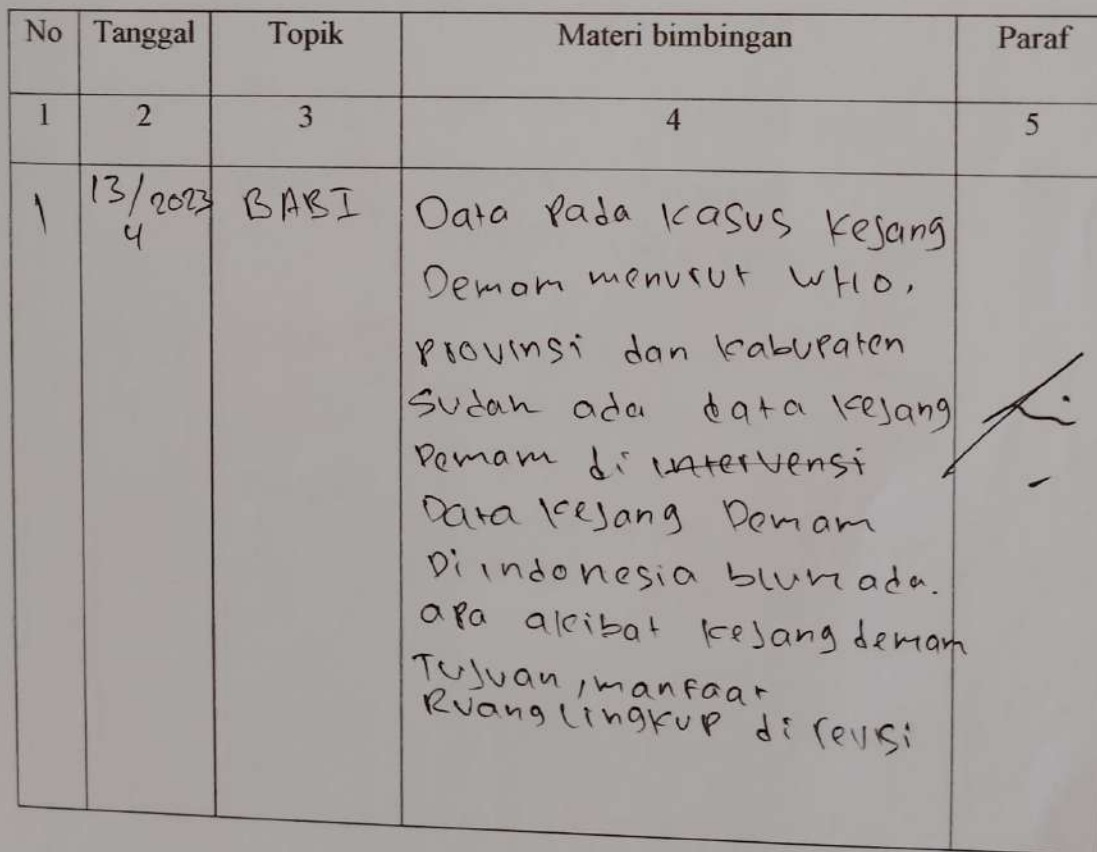 No Tanggal Topik Materi bimbingan Paraf
1 2 3 4 5
1 13/4 2023 BAB I Data Pada kasus kejang
Demam menurut WHO,
provinsi dan kabupaten
Sudah ada data kejang
Demam di intervensi
Data kejang Demam
Di indonesia blum ada.
apa akibat kejang demam
Tujuan, manfaat
Ruang lingkup di revisi